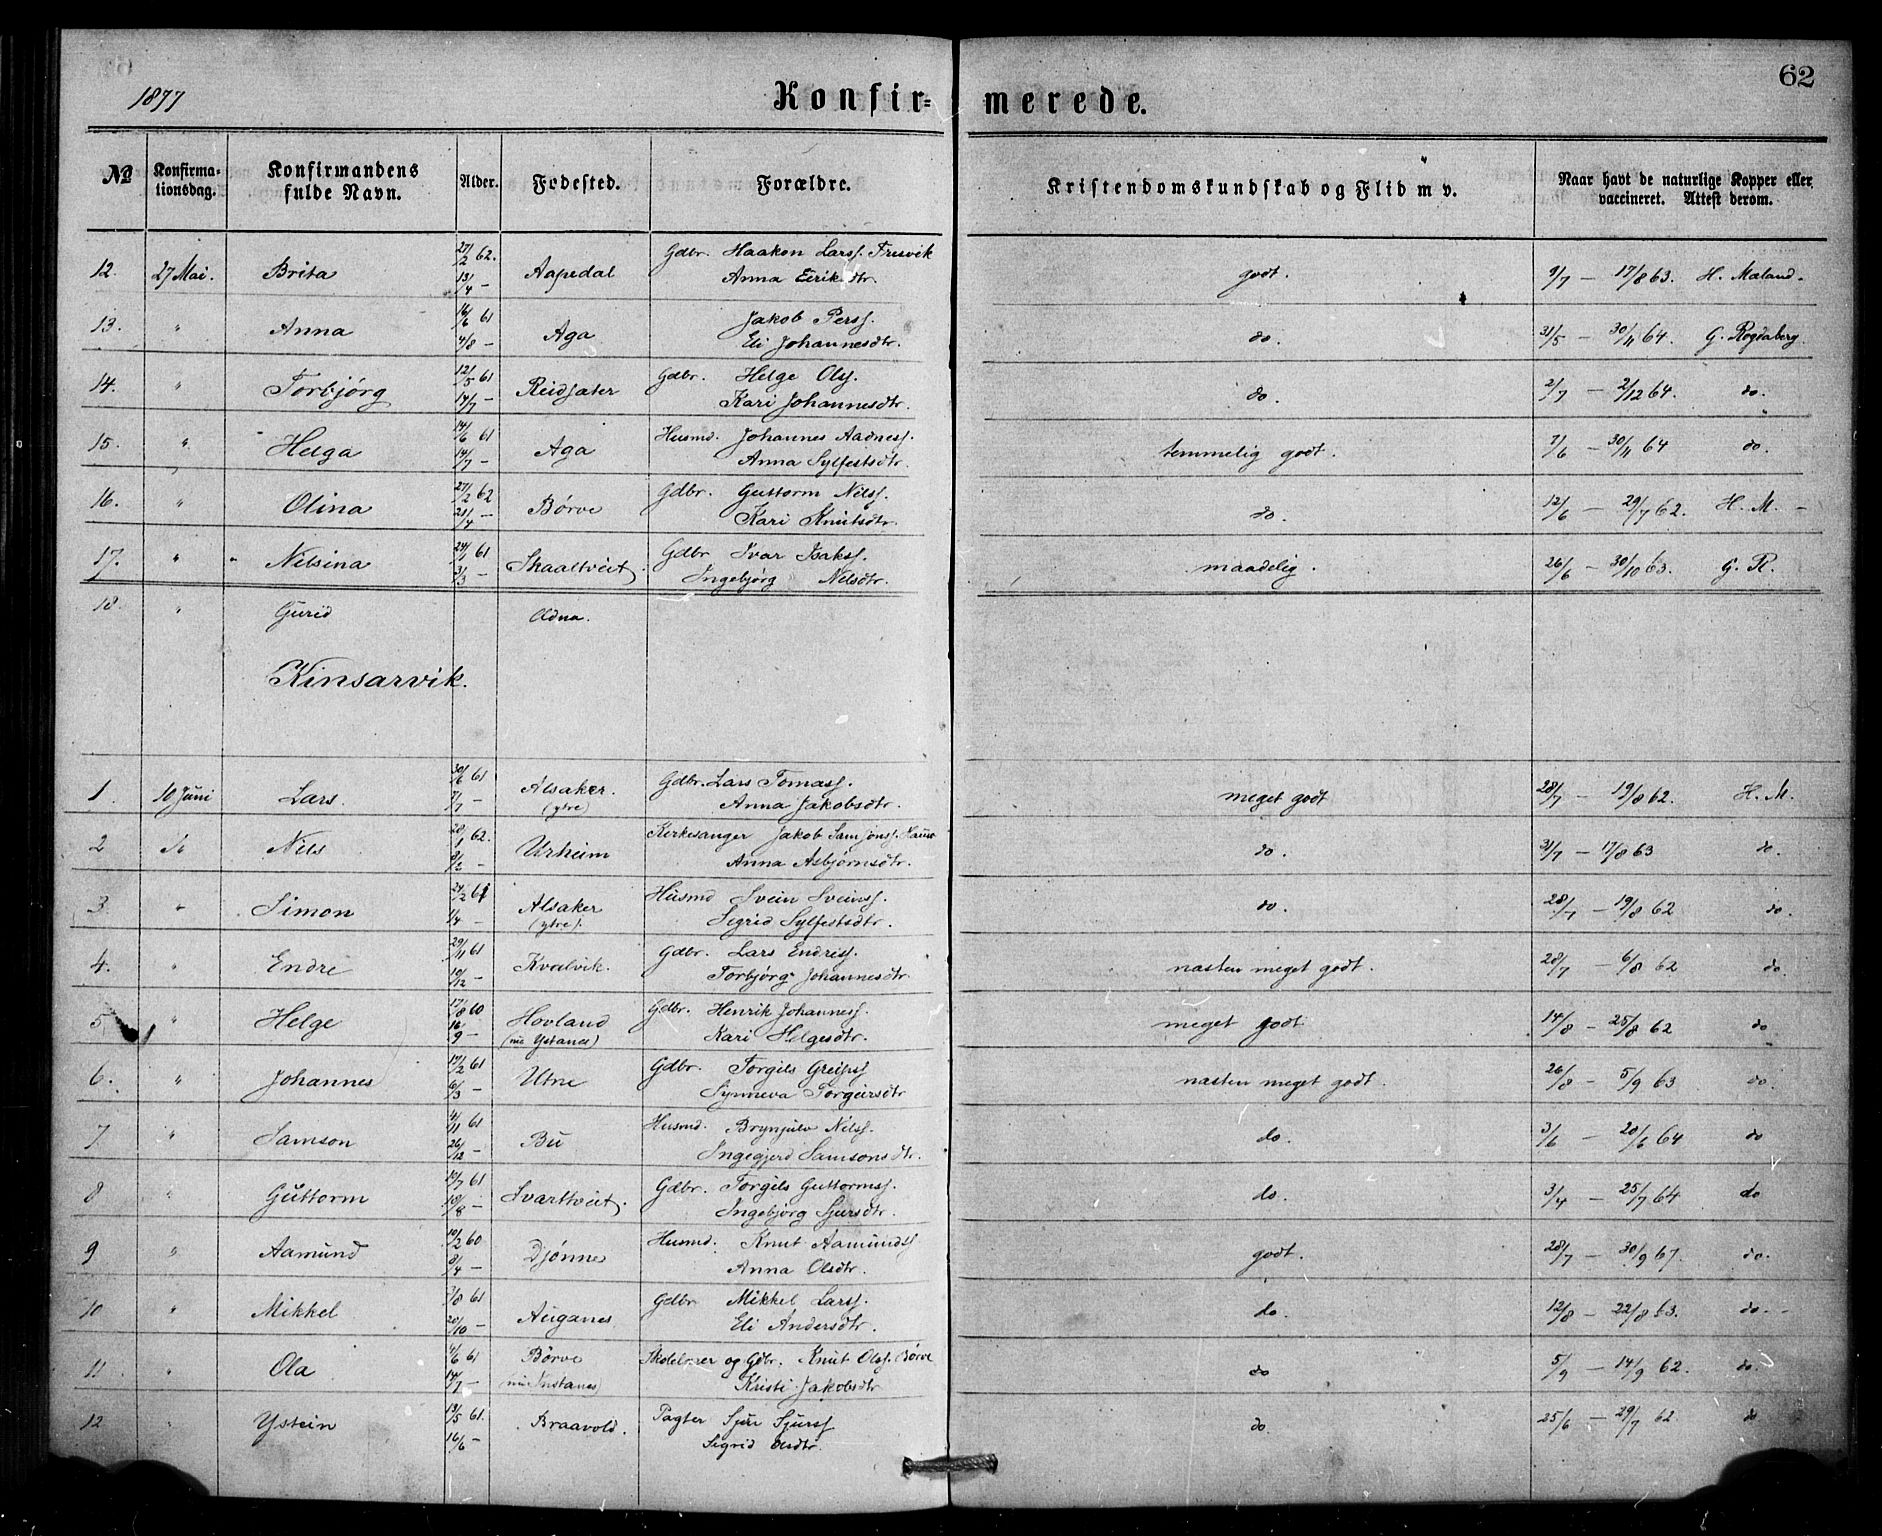 1877
Konfir= merede.
62
№ Konfirma-tionsdag. Konfirmandens fulde Navn. Alder. Fødested. Forældre. Kristendomskundskab og Flid m v. Naar havt de naturlige Kopper eller vaccineret. Attest derom.
12. 27 Mai. Brita 27/2 62. 13/4 - Aapedal Gdbr. Haakon Larss. Tresvik Anna Eiriksdtr. godt. 9/7 - 17/8 63. H. Mæland.
13. " Anna 16/6 61 4/8 - Aga Jakob Perss. Eli Johannesdtr. do. 31/5 - 30/11 64. G. Rogdaberg.
14. " Torbjørg 12/5 61 14/7 - Reidsæter Gdbr. Helge Olss. Kari Johannesdtr. do. 2/7 - 2/12 64. do.
15. " Helga 14/6 61 14/7 - Aga Husmd. Johannes Aadness. Anna Sylfestsdtr. temmelig godt. 7/6 - 30/11 64 do.
16. " Olina 27/2 62 21/4 - Børve Gdbr. Guttorm Nilss. Kari Knutsdtr. do. 12/6 - 29/7 62. H. M. -
17. " Nilsina 24/1 61 31/3 - Skaaltveit Gdbr Ivar Isakss. Ingebjørg Nilsdtr. maadelig. 26/6 - 30/10 63. G. R.
18. " Gurid Odna.
Kinsarvik.
1. 10 Juni Lars. 30/6 61 7/7 - Alsaker. (ytre) Gdbr. Lars Tomass. Anna Jakobsdtr. meget godt 28/7 - 19/8 62. H. M.
2 Nils 28/1 62. 8/2 - Urheim Kirkesanger Jakob Samsonss. Anna Asbjørnsdtr. do. 31/7 - 17/8 63 do.
3 " Simon 24/2 61 1/4 - Alsaker (ytre). Husmd Svein Sveinss. Sigrid Sylfestsdtr. do. 28/7 - 19/8 62 do.
4. " Endre 29/11 61 10/12 - Kvalvik. Gdbr. Lars Endress. Torbjørg Johannesdtr. næsten meget godt. 28/7 - 6/8 62 do.
5 " Helge 17/8 60 16/9 - Hovland (nu Ystanes) Gdbr. Henrik Johanness. Kari Helgesdtr. meget godt 14/8 - 25/8 62 do
6. " Johannes 17/2 61 6/3 - Utne Gdbr. Torgils Greipss Synneva Torgeirsdtr næsten meget godt. 26/8 - 5/9 63 do.
7 " Samson 4/11 61 26/12 - Bu Husmd. Brynjulv Nilss. Ingegjerd Samsonsdtr. do. 3/6 - 20/6 64 do
8 " Guttorm 10/7 61 18/8 - Svarttveit. Gdbr. Torgils Guttormss. Ingebjørg Sjursdtr. do. 3/4 - 25/7 64 do
9 " Aamund 10/2 60 8/4 - Djønne Husmd. Knut Aamundss Anna Olsdtr. godt. 28/7 - 30/9 67. do.
10 " Mikkel 3/8 61 20/10 - Auganes Gdbr Mikkel Larss. Eli Andersdtr. do 12/8 - 22/8 63. do. -
11 " Ola 4/6 61 14/7 - Børve Skolelærer og Gdbr. Knut Olss. Børve Kristi Jakobsdtr do 5/9 - 14/9 62. do.
12 " Ystein 13/5 61. 16/6 - Braavold. Pagter Sjur Sjurss Sigrid Olsdtr. do 25/6 - 29/7 62. do